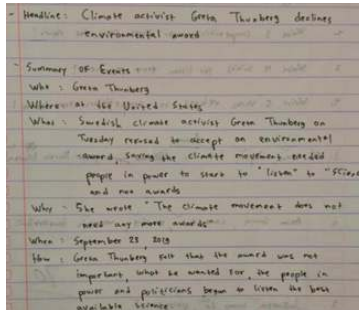 - Headline : Climate activist Greta Thunberg declines
environmental award
- Summary OF Events
Who : Greta Thunberg
Where : at United States
What : Swedish climate activist Greta Thunberg on
Tuesday refused to accept an environmental
award, saying the climate movement needed
people in power to start to "listen" to "Science"
and not awards
Why : She wrote "The climate movement does not
need any more awards"
When : September 23, 2019
How : Greta Thunberg felt that the award was not
important what she wanted for, the people in
power and politicians begun to listen the best
available science